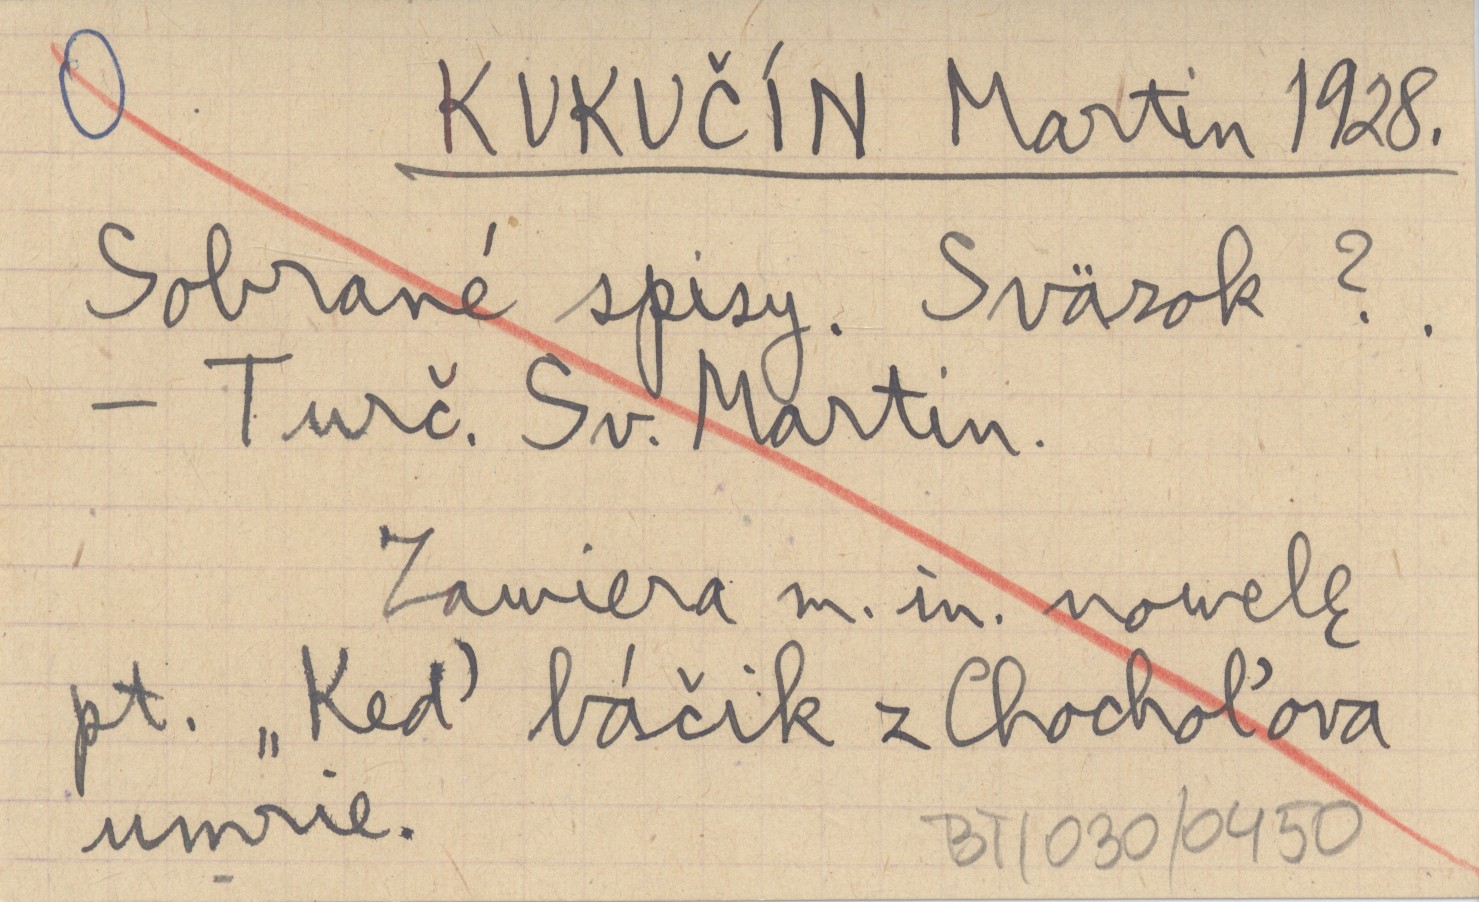 KUKUČÍN Martin 1928.
Sobrané spisy. Sväzok ? .
– Turč. Sv. Martin.
Zawiera m. in. nowelę
pt. „Keď báčik z Chochoľova
umrie.
BT/030/0450